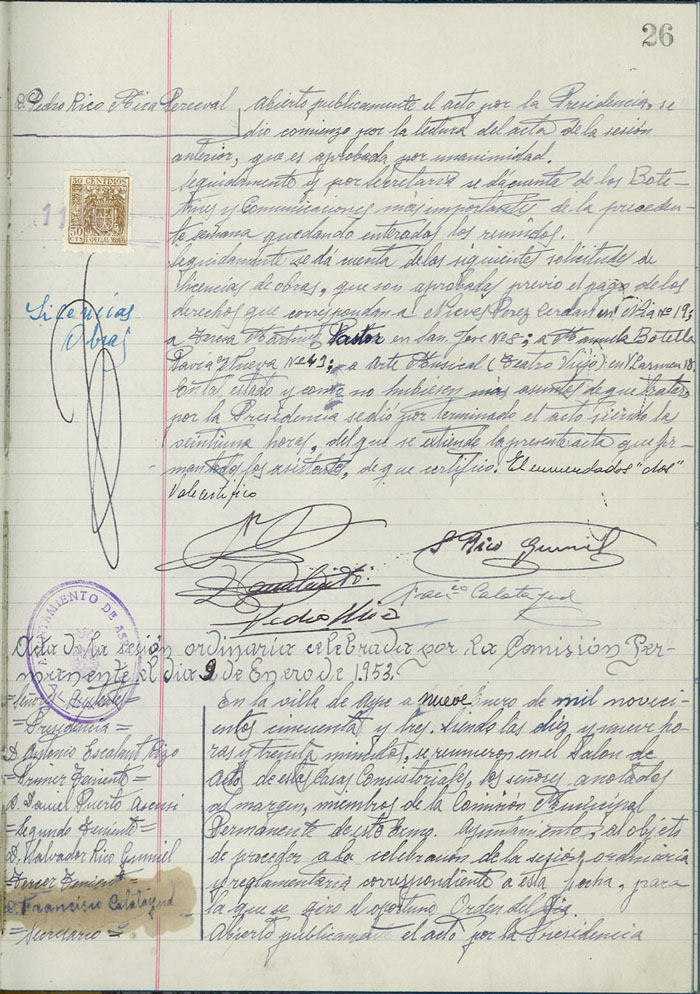 26
D. Pedro Rico Mira Perceval
Abierto publicamente el acto por la Presidencia, se
dio comienzo por la lectura del acta de la sesión
anterior, que es aprobada por unanimidad.
Seguidamente y por Secretaria se da cuenta de los Bole-
tines y Comunicaciones mas importantes de la preceden-
te semana quedando enterados los reunidos.
Seguidamente se da cuenta de las siguientes solicitudes de
licencias de obras, que son aprobadas previo el pago de los
derechos que correspondan a Nieves Perez Cerdan en Nº 19;
a Teresa Martinez Pastor en San Jose Nº 8; a Manuela Botella
Pavia Nueva Nº 49; a Arte Musical (Teatro Viejo) en V Carmen 18.
En tal estado y como no hubiesen mas asuntos de que tratar
por la Presidencia se dio por terminado el acto siendo las
veintiuna horas, del que se extiende la presente acta que fir-
man los asistentes, de que certifico. El enmendados "dos"
Vale certifico
50 CENTIMOS
50
CTS
ESPECIAL MOVIL
Licencias
Obras
S Rico Gumiel
Franco Calatayud
Pedro Rico
AYUNTAMIENTO DE ASPE
Acta de la sesión ordinaria celebrada por la Comisión Per-
manente el dia 9 de Enero de 1953.
=Señores Asistentes=
=Presidencia=
D. Antonio Escalant Rizo
=Primer Teniente=
D. Daniel Puerto Asensi
=Segundo Teniente=
D. Salvador Rico Gumiel
=Tercer Teniente=
D. Francisco Calatayud
=Secretario=
En la villa de Aspe a nueve Enero de mil novici-
entos cincuenta y tres. Siendo las diez y nueve ho-
ras y treinta minutos, se reunieron en el Salon de
Actos de estas Casas Consistoriales, los señores anotados
al margen, miembros de la Comisión Municipal
Permanente de este Excmo. Ayuntamiento, al objeto
de proceder a la celebración de la sesión ordinaria
y reglamentaria correspondiente a esta fecha, para
la que se giro el oportuno Orden del Dia
Abierto publicamente el acto por la Presidencia